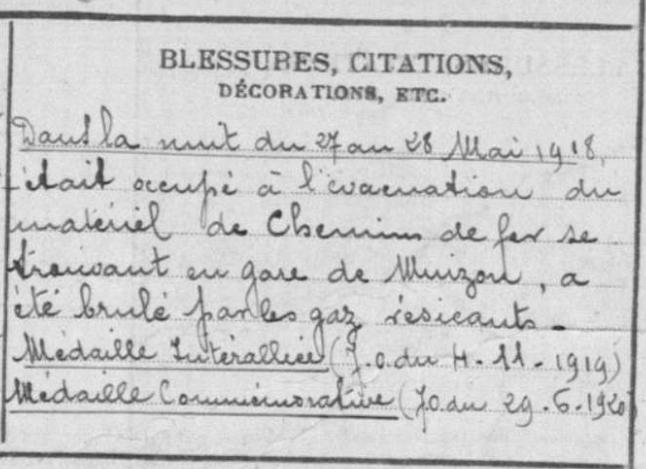 BLESSURES, CITATIONS,
DÉCORATIONS, ETC.
Dans la nuit du 27 au 28 Mai 1918,
était occupé à l'évacuation du
matériel de Chemins de fer se
trouvant en gare de Muizon, a
été brulé par les gaz vésicants.
Médaille Interalliée (J.O. du 4-11-1919)
Médaille Commémorative (JO du 29-6-1920)